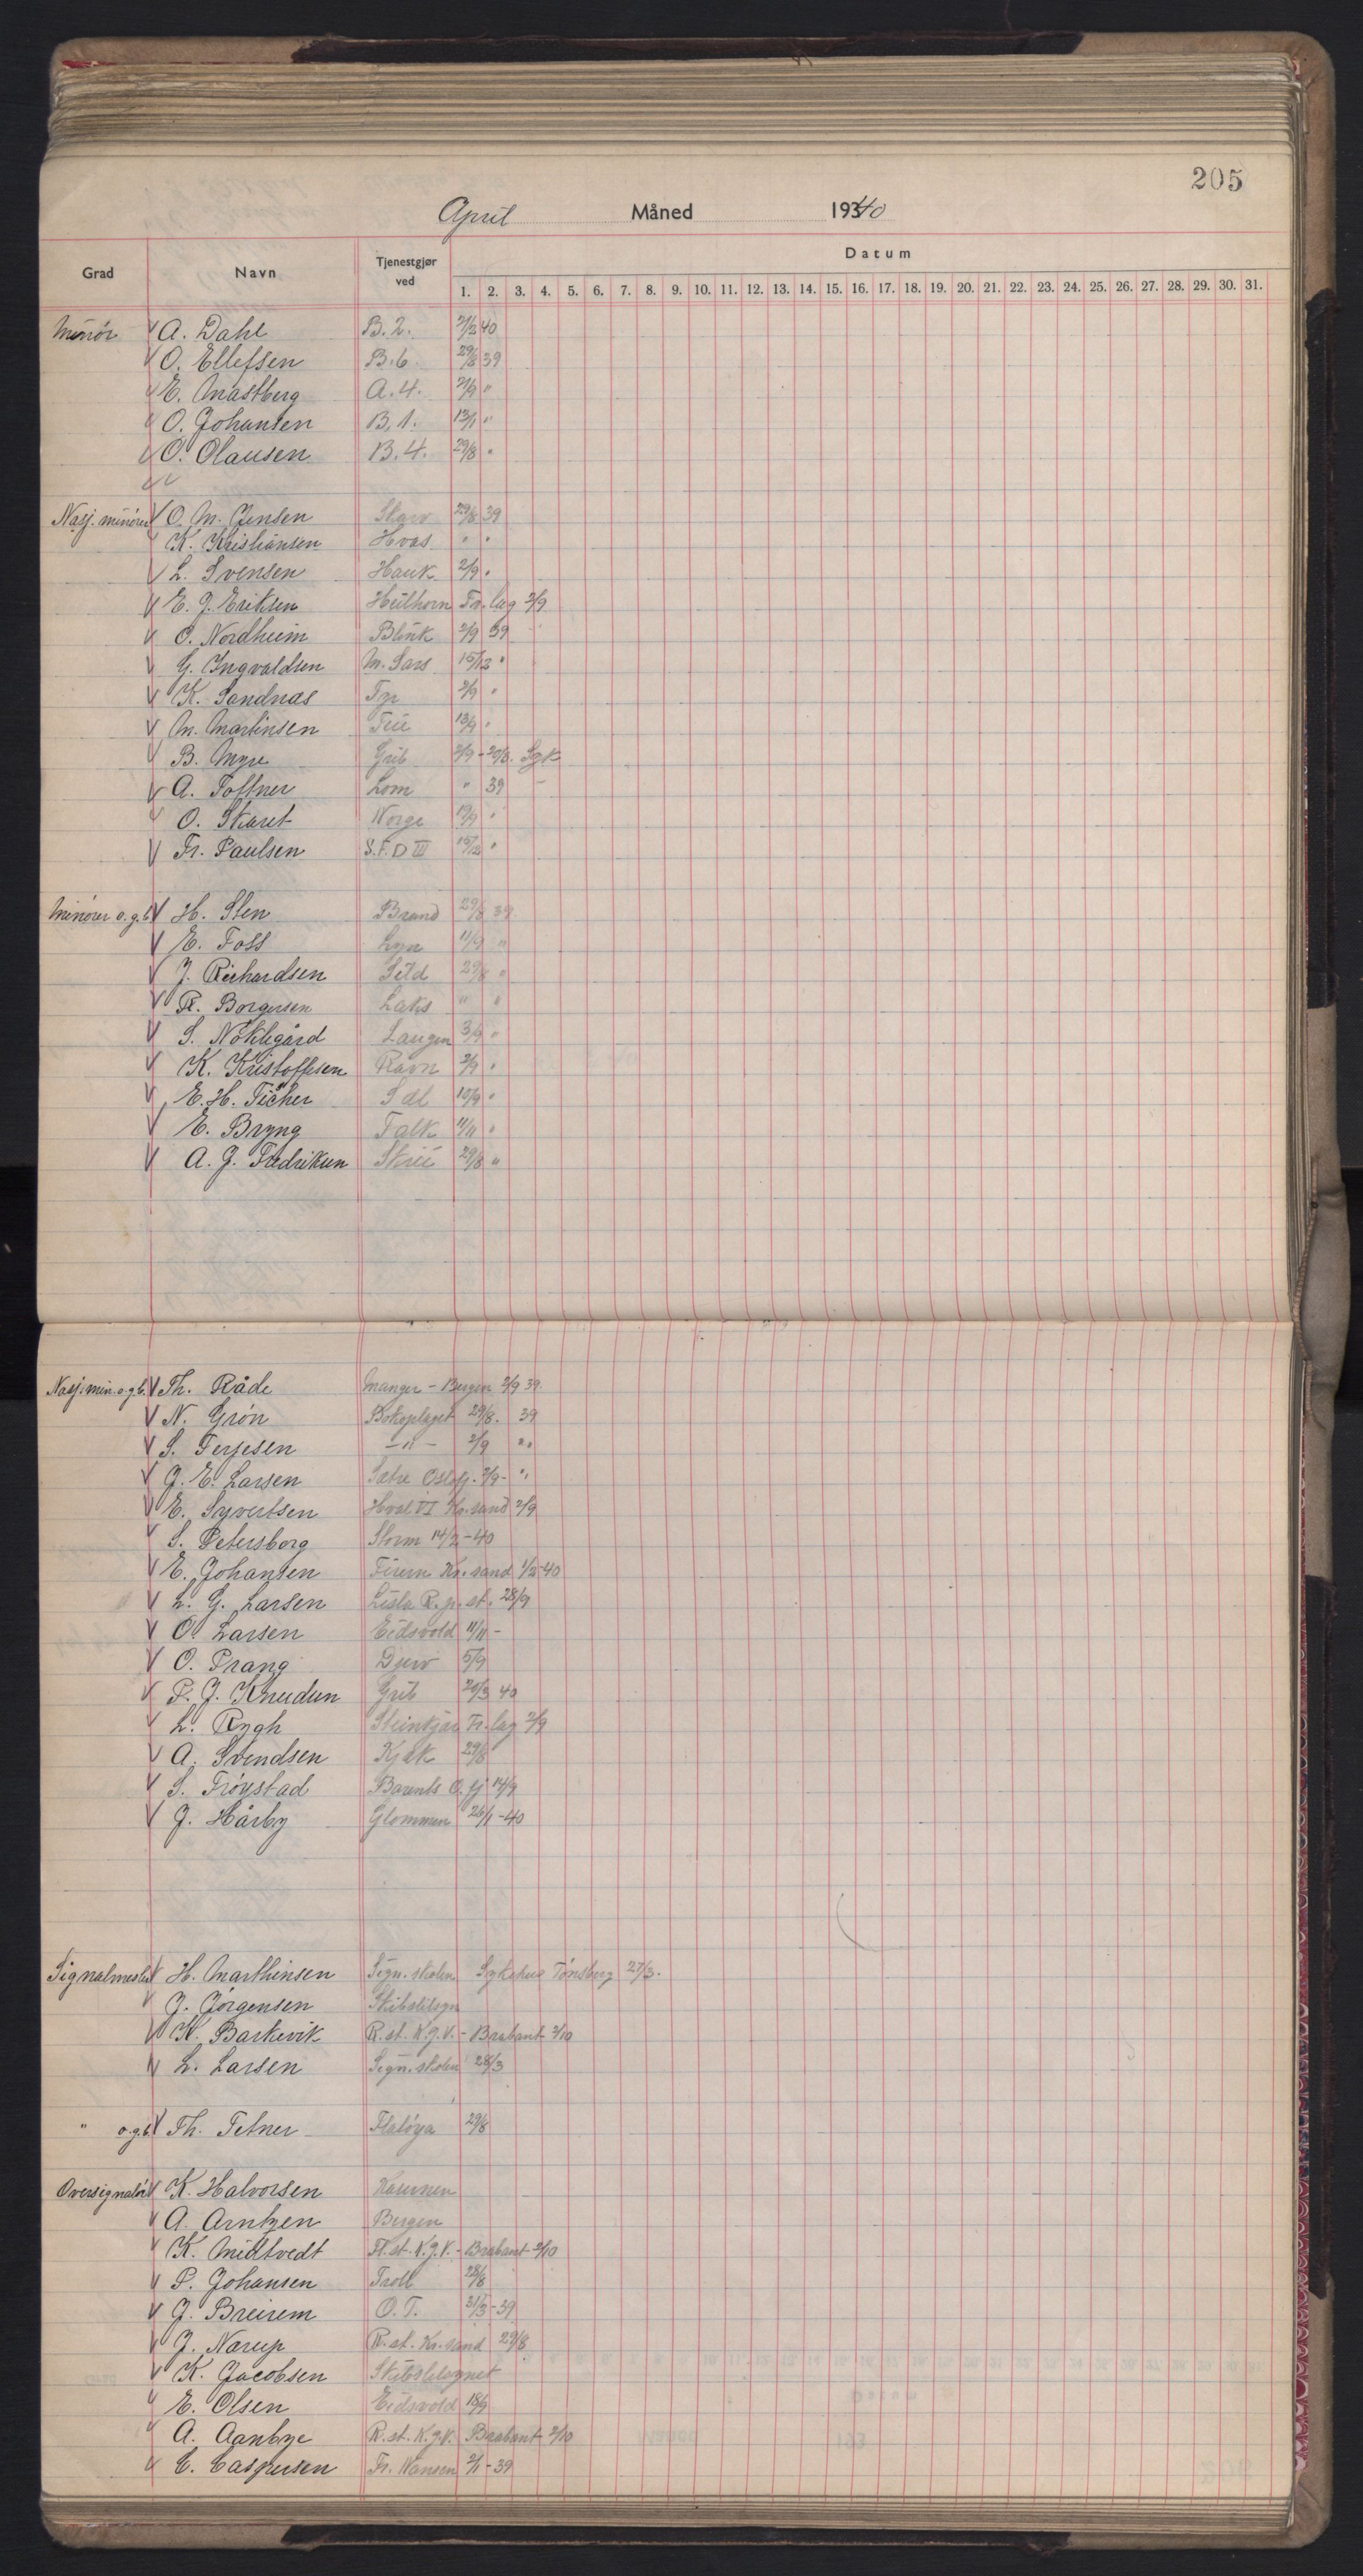 205
April Måned 1940
Grad Navn Tjenestgjør ved Datum
1. 2. 3. 4. 5. 6. 7. 8. 9. 10. 11. 12. 13. 14. 15. 16. 17. 18. 19. 20. 21. 22. 23. 24. 25. 26. 27. 28. 29. 30. 31.
Minør A. Dahl B. 2. 40
O. Ellefsen B. 6. 29/8 39
E. Mastberg A. 4. "
O. Johansen B. 1. "
O. Olausen B. 4. 29/8 "
Nasj. minører O. M. Jensen Skarv 29/8 39
K. Kristiansen Hvas " "
L. Svensen Hauk 2/9 "
E. J. Eriksen Heilhorn Tr. lag 2/9
O. Nordheim Blink 2/9 39
G. Ingvaldsen M. Sars 15/12 "
K. Sandnas Tyr 2/9 "
M. Martinsen Teie 13/9 "
B. Myre Grib 2/9 - 20/3. Syk
A. Toftner Lom " 39
O. Skaret Norge 19/9 "
Fr. Paulsen S.F.D III 15/12 "
Minører o.g.b. H. Sten Brand 29/8 39
E. Foss Lyn 11/9 "
J. Richardsen Sild 29/8 "
R. Borgersen Laks " "
S. Nøklegård Laugen 3/9 "
K. Kristoffesen Ravn 2/9 "
E. H. Ficher Sæl 15/9 "
E. Bryng Falk 11/11 "
A. J. Fredriksen Skrei 29/8 "
Nasj. min. o.g.b. Th. Råde Manger - Bergen 2/9 39.
N. Grøn Bokoplaget 29/8. 39
S. Terjesen - " - 2/9 "
J. E. Larsen Sætre Oslofj. 2/9 - "
E. Syvertsen Hval VI Kr.sand 2/9
S. Petersborg Storm 14/2 - 40
E. Johansen Firern Kr.sand 1/2-40
L. G. Larsen Lista R.p. st. 28/9
O. Larsen Eidsvold 11/11 -
O. Prang Djerv 5/9
P. J. Knudsen Grib 20/3 40
L. Rygh Steinkjær Tr. lag 2/9
A. Svendsen Kjæk 29/8
S. Trøystad Barents O. fj 14/9
J. Hårby Glommen 26/1 - 40
Signalmester H. Marthinsen Sign. skolen Sykehus Tønsberg 27/3.
J. Jørgensen Skibstilsyn
K. Barkevik R. st. K.J.V. - Brabant 2/10
L. Larsen Sign. skolen 28/3
" o.g.b. Th. Tetner Flatøya 29/8
Oversignalør K. Halvorsen Kasernen
A. Arntzen Bergen
K. Midtvedt R. st. K.J.V. - Brabant 2/10
P. Johansen Troll 28/8
J. Breirem O. T. 31/3 - 39
J. Narup R. st. Kr.sand 29/8
K. Jacobsen Skibstilsynet
E. Olsen Eidsvold 18/9
A. Aanbye R. st. K.J.V. Brabant 2/10
C. Caspersen Fr. Nansen 2/1 - 39